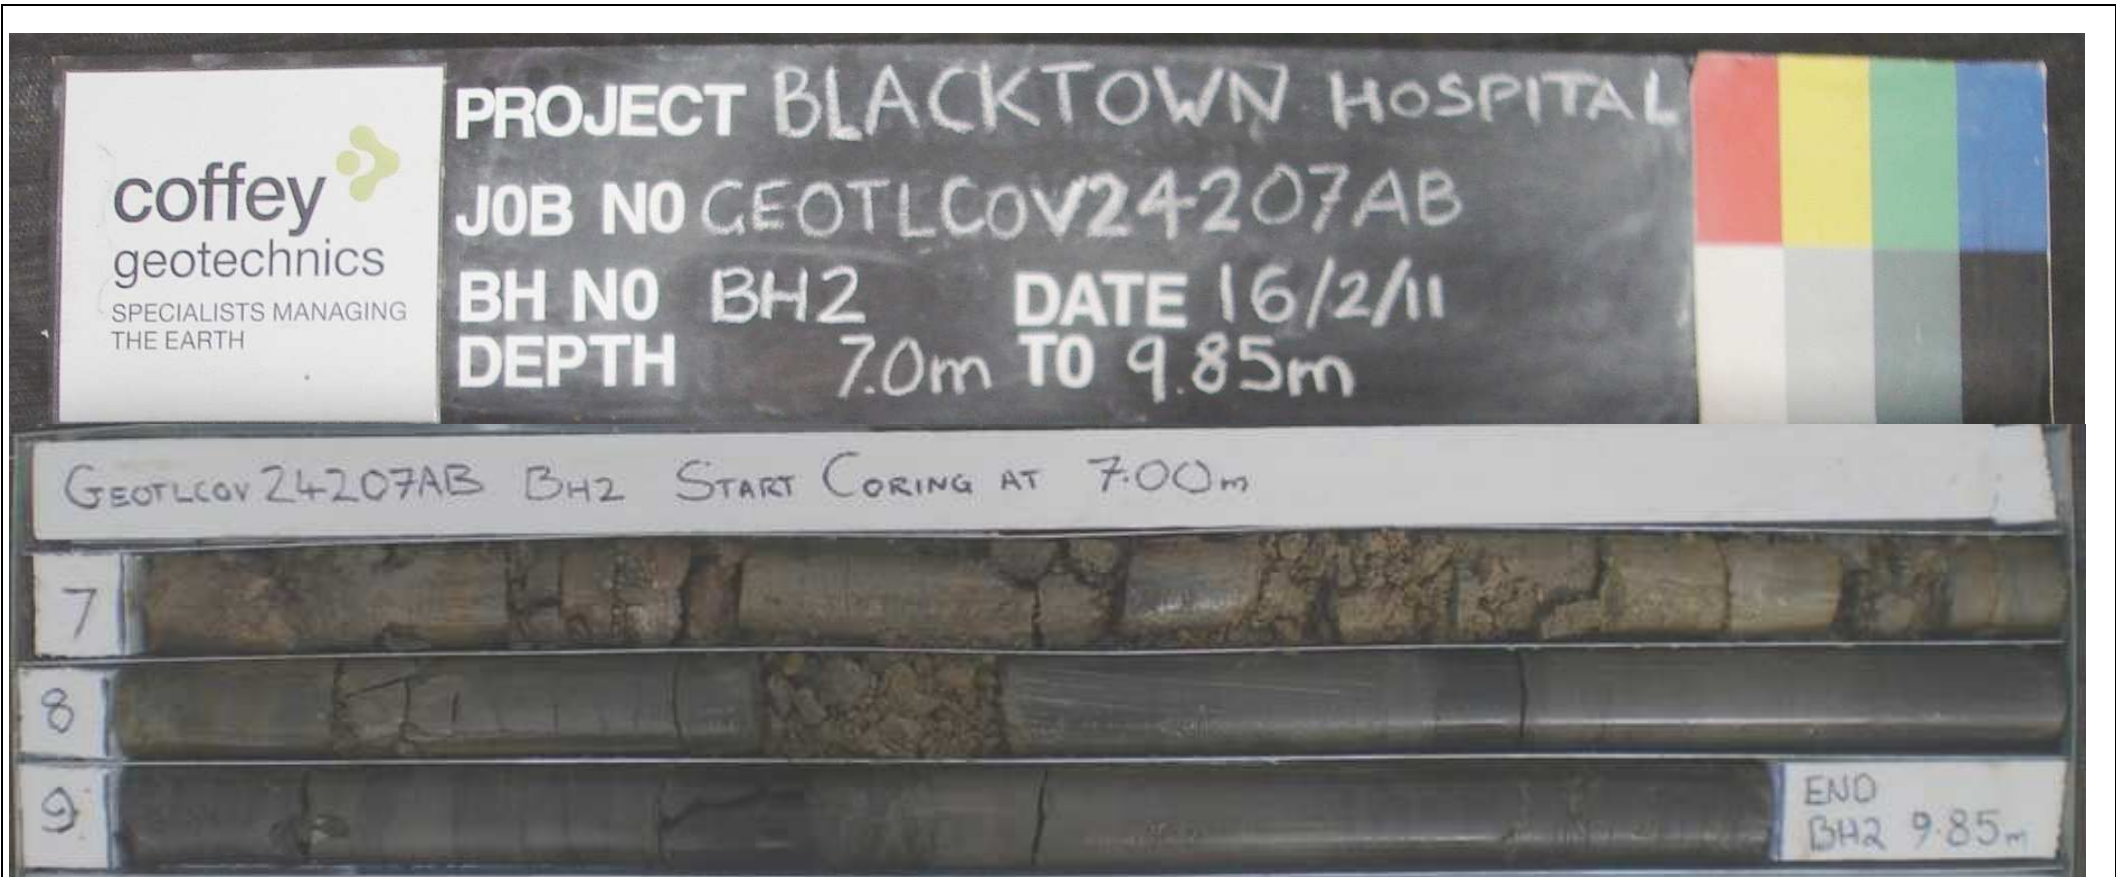 coffey
geotechnics
SPECIALISTS MANAGING
THE EARTH
PROJECT BLACKTOWN HOSPITAL
JOB NO GEOTLCOV24207AB
BH NO BH2 DATE 16/2/11
DEPTH 7.0m TO 9.85m
GEOTLCOV24207AB BH2 START CORING AT 7.00m
7
8
9
END
BH2 9.85m